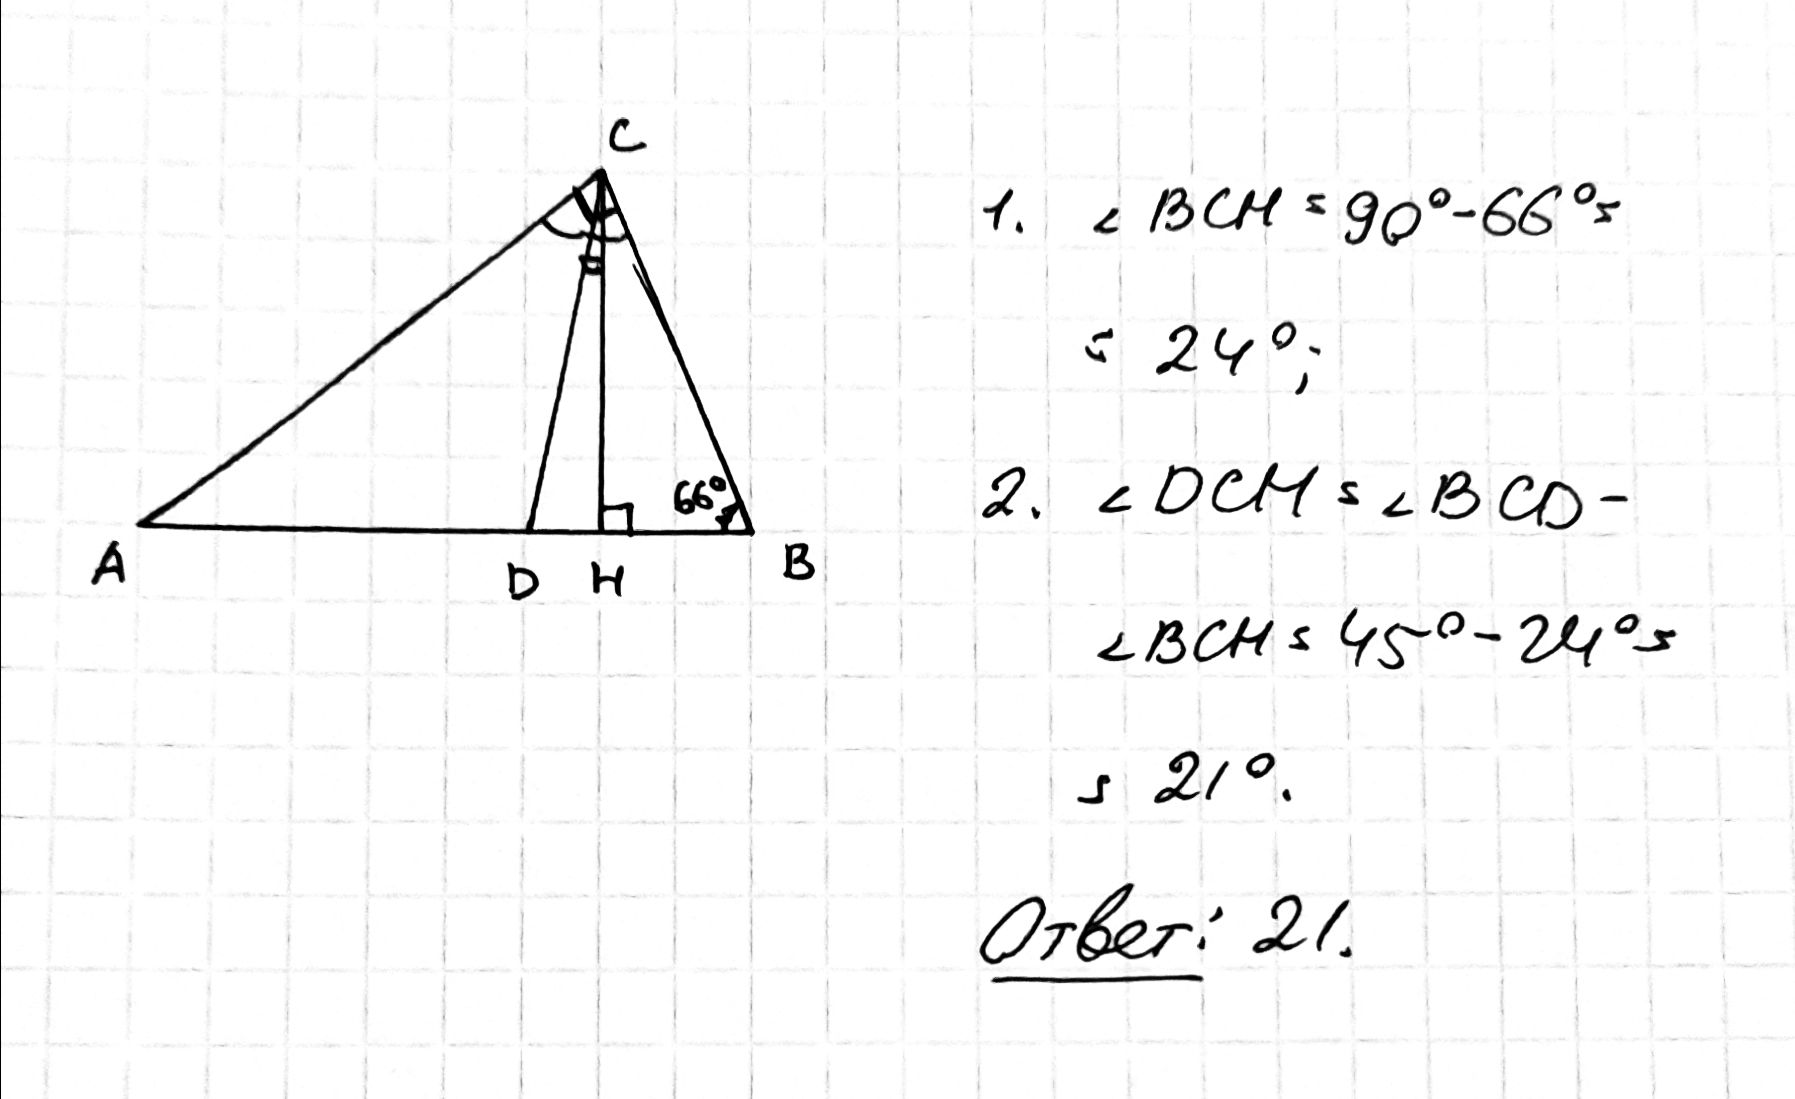 C
66°
A
D H
B
1. ∠BCH = 90° - 66° =
= 24°;
2. ∠DCH = ∠BCD -
∠BCH = 45° - 24° =
= 21°.
Ответ: 21.